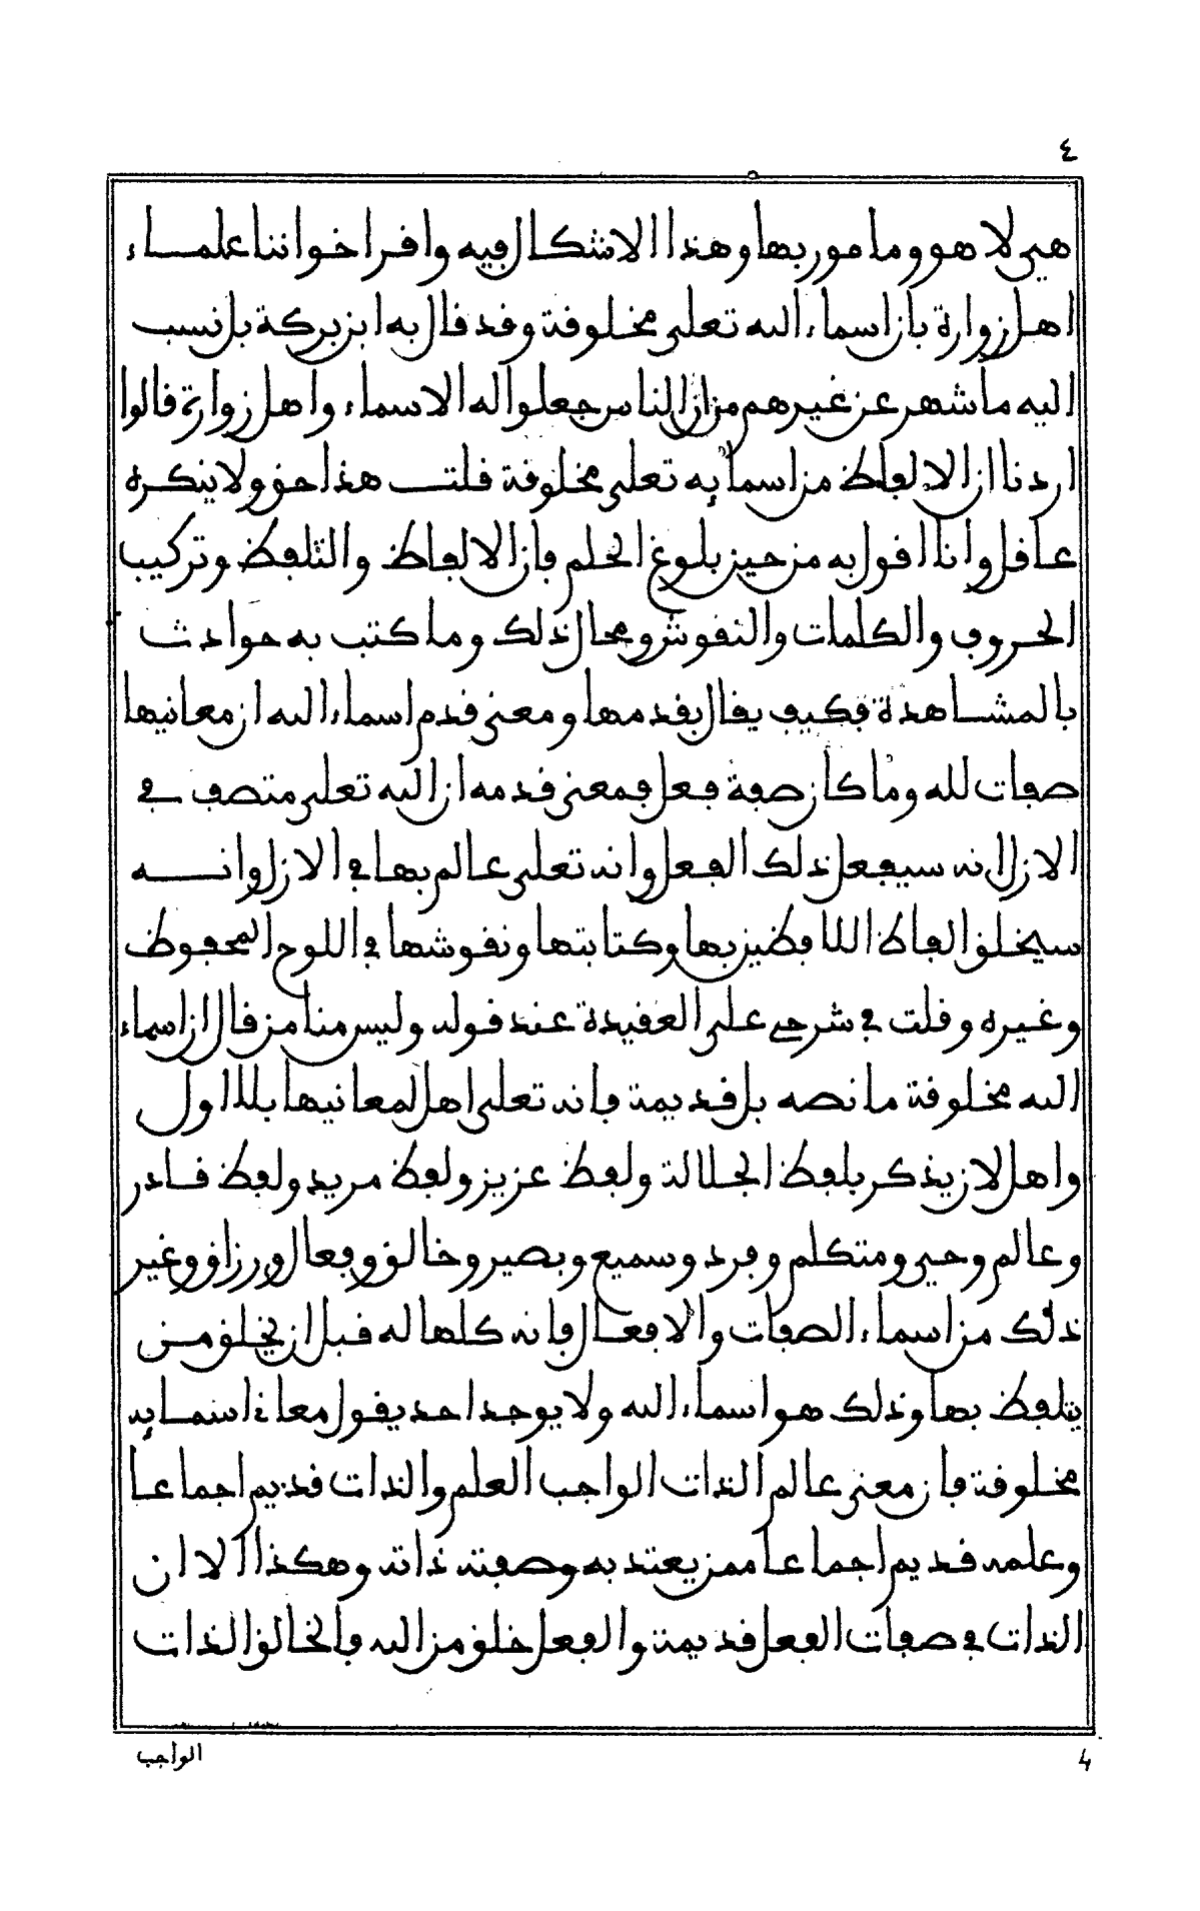 ٤
هي لا هو وما مور بها وهذا الاشكال فيه وافر اخواننا علماء
اهل زوارة بان اسماء الله تعلى مخلوفة وقد قال به ابن بركة بل نسب
اليه ما شهر عن غيرهم من ان الناس جعلوا له الاسماء واهل زوارة قالوا
اردنا ان الالفاظ من اسمائه تعلى مخلوقة قلت هذا حق ولا ينكره
عاقل وانا اقول به من حين بلوغ الحلم فان الالفاظ والتلفظ وتركيب
الحروف والكلمات والنقوش ومحال ذلك وما كتب به حوادث
بالمشاهدة فكيف يقال بقدمها ومعنى قدم اسماء الله ان معانيها
صفات لله وما كان صفة فعل فمعنى قدمه ان الله تعلى متصف في
الازل انه سيفعل ذلك الفعل وانه تعلى عالم بها في الازل وانه
سيخلق الفاظ اللافظين بها وكتابتها ونقوشها في اللوح المحفوظ
وغيره وقلت في شرحي على العقيدة عند قوله وليس منا من قال ان اسماء
الله مخلوقة ما نصه بل قديمة فانه تعلى اهل لمعانيها بلا اول
واهل لان يذكر بلفظ الجلالة ولفظ عزيز ولفظ مريد ولفظ قادر
وعالم وحي ومتكلم وفرد وسميع وبصير وخالق وفعال ورزاق وغير
ذلك من اسماء الصفات والافعال فانه كلها له قبل ان يخلق من
يتلفظ بها وذلك هو اسماء الله ولا يوجد احد يقول معاني اسمائه
مخلوقة فان معنى عالم الذات الواجب العلم والذات قديم اجماعا
وعلمه قديم اجماعا ممن يعتد به وصفته ذاته وهكذا الا ان
الذات في صفات الفعل قديمة والفعل خلق من الله فالخالق الذات
الواجب
4